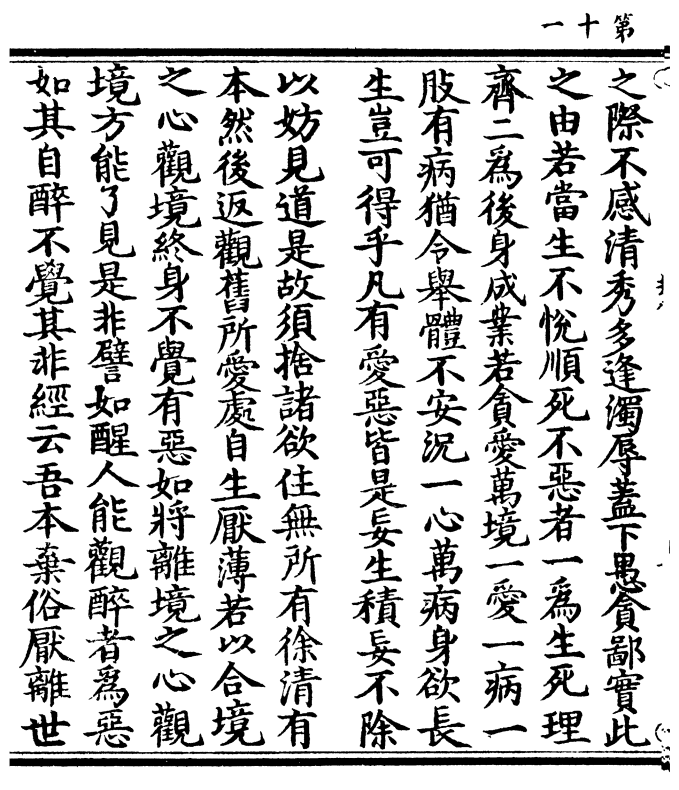 第十一
之際不感清秀多逢濁辱蓋下愚貪鄙實此
之由若當生不悅順死不惡者一爲生死理
齊二爲後身成業若貪愛萬境一愛一病一
肢有病猶令舉體不安況一心萬病身欲長
生豈可得乎凡有愛惡皆是妄生積妄不除
以妨見道是故須捨諸欲住無所有徐清有
本然後返觀舊所愛處自生厭薄若以合境
之心觀境終身不覺有惡如將離境之心觀
境方能了見是非譬如醒人能觀醉者爲惡
如其自醉不覺其非經云吾本棄俗厭離世